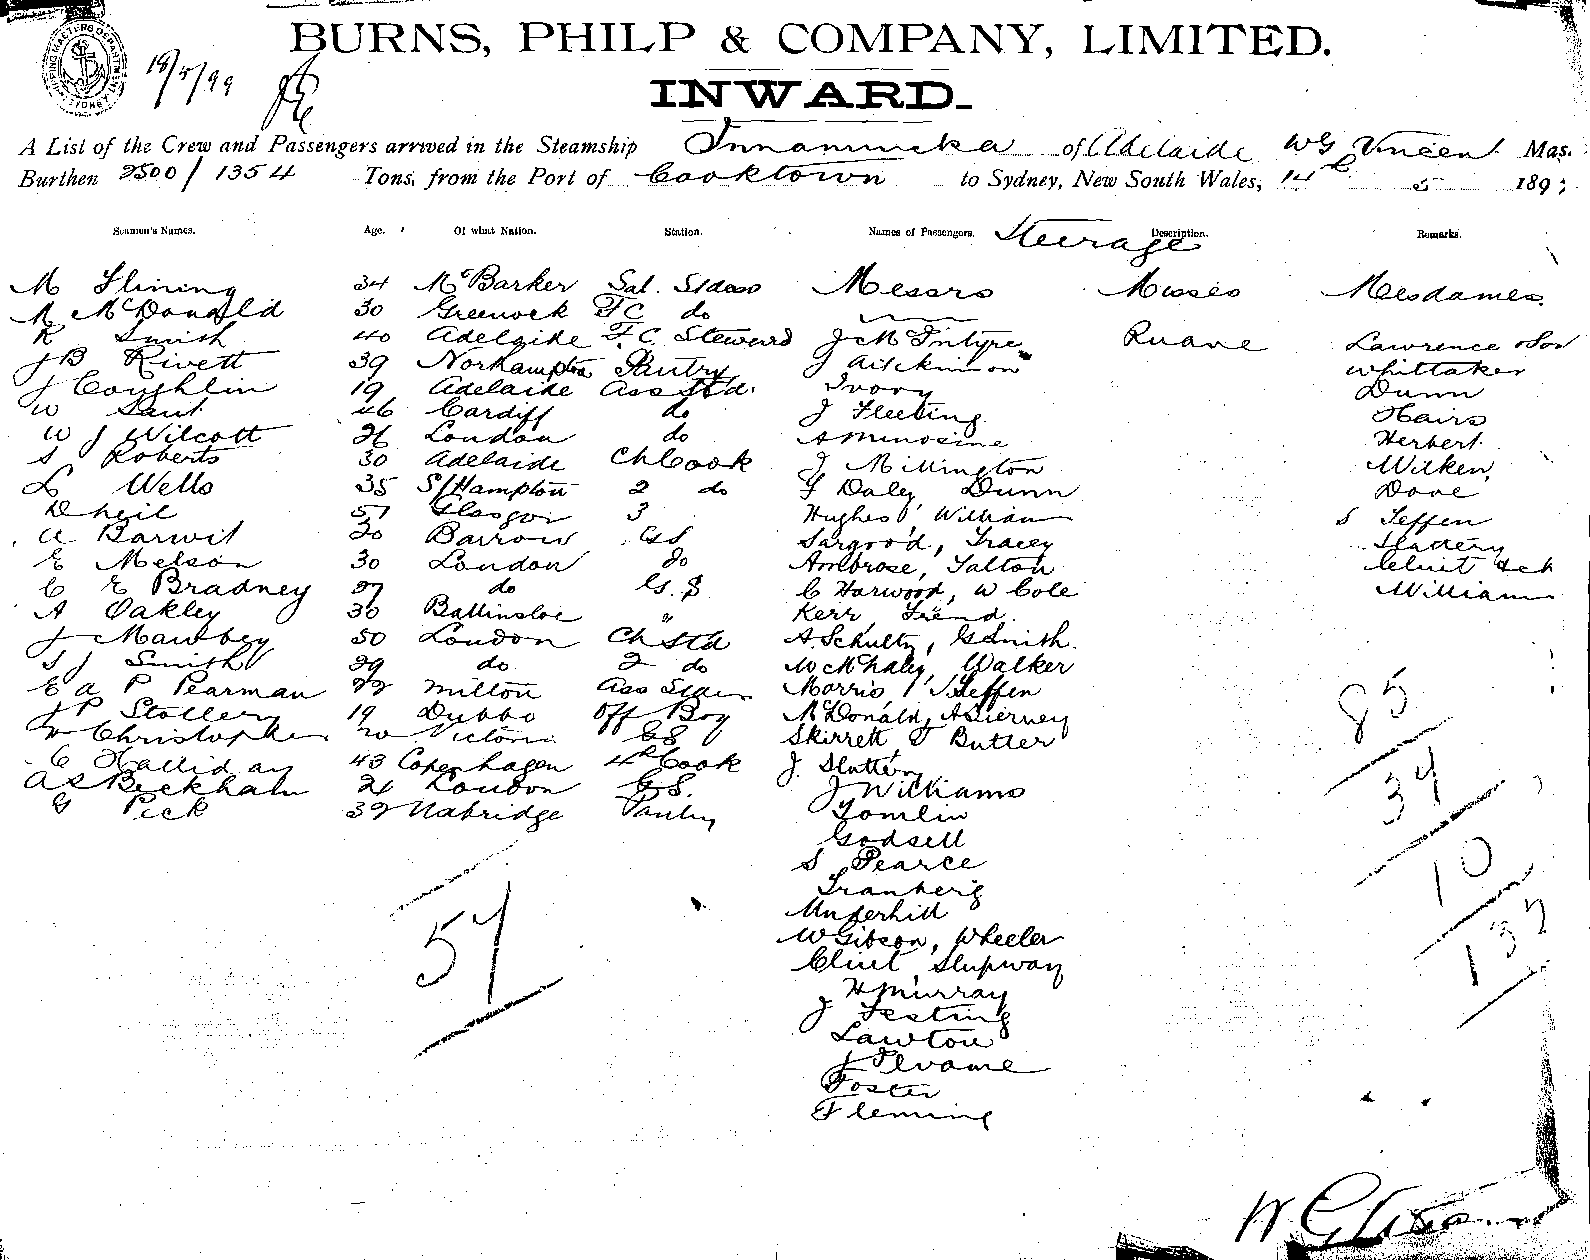 18/5/99
BURNS, PHILP & COMPANY, LIMITED.
INWARD.
A List of the Crew and Passengers arrived in the Steamship Innamincka of Adelaide W G Vincent Mas.
Burthen 2500/1354 Tons, from the Port of Cooktown to Sydney, New South Wales, 14th 5 189
Seamen's Names. Age. Of what Nation. Station. Names of Passengers. Steerage Description. Remarks.
M 34 McBarker Sal. Messrs Misses Mesdames
M McDonald 30 Greenock F C do
R Smith 40 Adelaide F.C. Steward J McIntyre Ruane Lawrence & Son
J B Rivett 39 Northampton Pantry J Aitckinson Whittaker
J Coughlin 19 Adelaide Ass Std. Ivory Dunn
W 46 Cardiff do J Fleeting Hairs
W J Wilcott 26 London do Herbert
S Roberts 30 Adelaide Ch Cook J Millington Wilken
L Wells 35 S/Hampton 2 do F Daley Dunn Dove
D Neil 51 Glasgow 3 Hughes, William S Jeffen
A Barwit 20 Barrow G S Sargood, Tracey Slattery
E Melson 30 London do Ambrose, Talton
C E Bradney 27 do G.S. C Harwood, W Cole William
A Oakley 30 Ballinsloe " Kerr, Friend.
J Mawbey 50 London Ch Std A. Schultz, G Smith.
S J Smith 29 do 2 do W McNaley, Walker
E A P Pearman 22 Milton Ass Morris, J Jeffen
J P Stollery 19 Dubbo Off Boy McDonald, A Tierney
W Christopher 20 Victoria G S Skirrett, J Butter
C Halliday 43 Copenhagen 4th Cook J. Slattery
A S Beckham 24 London G.S. J Williams
G Peck 39 Uxbridge Pantry Tomlin
Godsell
S Pearce
Tranberg
Underhill
W Gibson, Wheeler
Cluit, Slupway
H Murray
J Festing
Lawton
Foster
Fleming
57
85
34
10
137